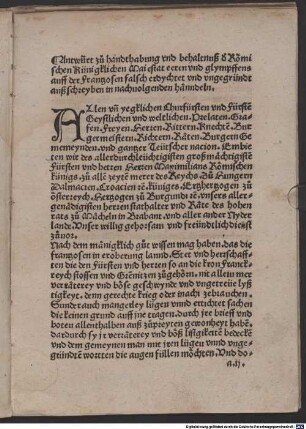 ¶Antwürt zů handthabung vnd behaltnuß d̕ Römi
schen Künigklichen Maiestat eeren vnd glympffens
auff der Frantzosen falsch erdychtet vnd vngegründt
außschreyben in nachuolgenden hänndeln.
ALlen vñ yegklichen Churfürsten vnd Fürstẽ
Geystlichen vnd weltlichen, Prelaten, Gra-
fen, Freyen, Herren, Rittern, Knechtẽ, Bur
germeistern, Richtern, Räten, Burgern Ge
meynden, vnd gantzer Teütscher nacion. Em-
bieten wir des allerdurchleüchtigisten großmächtigistẽ
Fürsten vnd herren Herren Maximilians Römischen
künigs, zů allẽ zeytẽ merer des Reychs, Zů Hungern
Dalmacien, Croacien ꝛc̃ künigs, Ertzhertzogen zů
österreych, Hertzogen zů Burgundi ꝛc̃ vnsers aller-
genädigisten herren stathalter vnd Räte des hohen
rats zů Mächeln in Brabant, vnd aller ander Nyder
lande, Vnser willig gehorsam vnd freündtlich dienst
zůuor.
Nach dem mänigklich gůt wissen mag haben, das die
frantzosen in eroberung lannd, Stet vnd herrschaff-
ten die den Fürsten vnd herren so an die kron Franck-
reych stossen vnd Gränitzen zůgehörn, mit allein mer
verräterey vnd böse geschwynde vnd vngetreüe lyß
tigkeyt, denn gerechte krieg oder macht gebrauchen.
Sunder auch mängerley lügen vnnd erttichtet sachen
die keinen grund auff jne tragen, durch jre brieff vnd
boten allenthalben auß zůpreyten gewonheyt habẽ.
dardurch sy jr verräterey vnd böß lystigkeitẽ bedeckẽ
vnd dem gemeynen man mit jren lügen vnnd vnge-
gründtẽ worten die augen füllen möchten. Vnd do-
a ij.